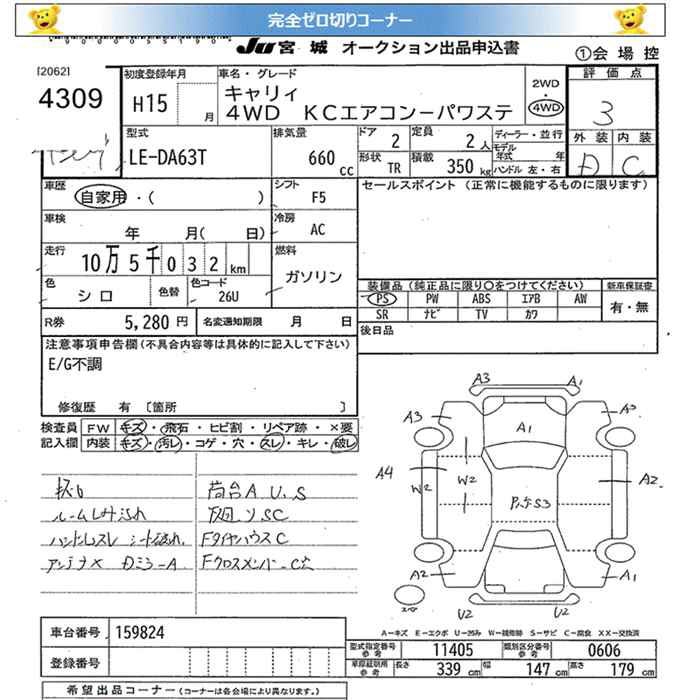 完全ゼロ切りコーナー
JU宮城 オークション出品申込書
①会場控
[2062]
4309
初度登録年月
H15 月
車名・グレード
キャリィ
4WD KCエアコンーパワステ
2WD
・
4WD
評価点
3
外装 内装
D C
型式
LE-DA63T
排気量
660 cc
ドア 2
定員 2人
形状 TR
積載 350 kg
ディーラー・並行
モデル年式 年
ハンドル 左・右
車歴
自家用・( )
シフト F5
セールスポイント (正常に機能するものに限ります)
車検
年 月( 日)
冷房 AC
走行
10万5千032km
燃料
ガソリン
色 シロ
色替
色コード 26U
装備品 (純正品に限り○をつけてください)
新車保証書
PS PW ABS エアB AW
SR ナビ TV カワ
有・無
R券 5,280円
名変通知期限 月 日
後日品
注意事項申告欄(不具合内容等は具体的に記入して下さい)
E/G不調
修復歴 有 〔箇所 〕
検査員 FW キズ・飛石・ヒビ割・リペア跡・×要
記入欄 内装 キズ・汚レ・コゲ・穴・スレ・キレ・破レ
荷台A.U.S
ルームしみ汚れ
ハンドルスレ シート破れ
アンテナ× DミラーA
FタイヤハウスC
A3 A1
A3 A3
A1
A4 W2 W2 A2
S3
A2 A1
U2 U2
A-キズ E-エクボ U-凹み W-補修跡 S-サビ C-腐食 XX-交換済
車台番号 159824
登録番号
型式指定番号 参考 11405
類別区分番号 参考 0606
車庫証明用 参考 長さ 339 cm 幅 147 cm 高さ 179 cm
希望出品コーナー(コーナーは各会場により異なります。)